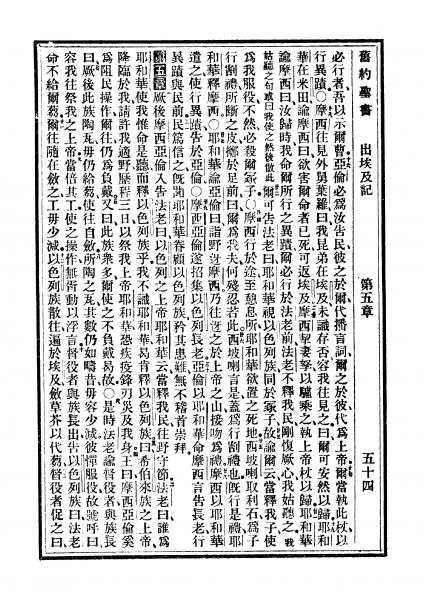 舊約聖書 出埃及記 第五章 五十四
必行者吾以示爾曹亞倫必爲汝告民彼之於爾代播言詞爾之於彼代爲上帝爾當執此杖以
行異蹟○摩西往見外舅葉羅曰我昆弟在埃及未識存否容我往見之曰爾可安然以歸耶和
華在米田諭摩西曰欲害爾命者已死可返埃及摩西挈妻孥以驢乘之執上帝杖以歸耶和華
諭摩西曰汝歸時我命爾所行之異蹟爾必行於法老前法老不釋我民剛愎厥心我姑聽之我
姑聽之句或曰我使之然後倣此爾可告法老曰耶和華視以色列族同於冢子故諭爾云當釋我子使
爲我服役不然必殺爾冢子○摩西行於途至憩息所耶和華欲置之死地西坡喇取利石爲子
行割禮所斷之皮擲於足前曰爾爲我夫何殘忍若此西坡喇言是蓋爲行割禮也旣行是禮耶
和華釋摩西○耶和華諭亞倫曰詣野迓摩西乃往迓之於上帝之山接吻爲禮摩西以耶和華
遣之使行異蹟告於亞倫○摩西亞倫遂招集以色列長老亞倫以耶和華命摩西言告長老行
異蹟與前民爲信之旣聞耶和華眷顧以色列族矜其患難無不稽首崇拜
第五章 厥後摩西亞倫入告法老曰以色列之上帝耶和華云當釋我民往野守節法老曰誰爲
耶和華使我惟命是聽而釋以色列族乎我不識耶和華曷肯釋以色列族曰希伯來族之上帝
降臨於我請許我適野歷程三日以祭我上帝耶和華恐疾疫鋒刃災及我身王曰摩西亞倫奚
爲阻民操作爾往仍爲負戴又曰此族衆多爾使之不負戴曷故○是時法老諭督役者與族長
曰厥後此族陶瓦毋仍給葛使往自斂所陶之瓦其數仍如疇昔毋容少減彼憚服役故號呼曰
容我往祭我之上帝當倍其工使之操作無尚動以浮言督役者與族長出告以色列族曰法老
命不給爾葛爾往隨在斂之工毋少減以色列族散往遍於埃及斂草芥以代葛督役者促之曰